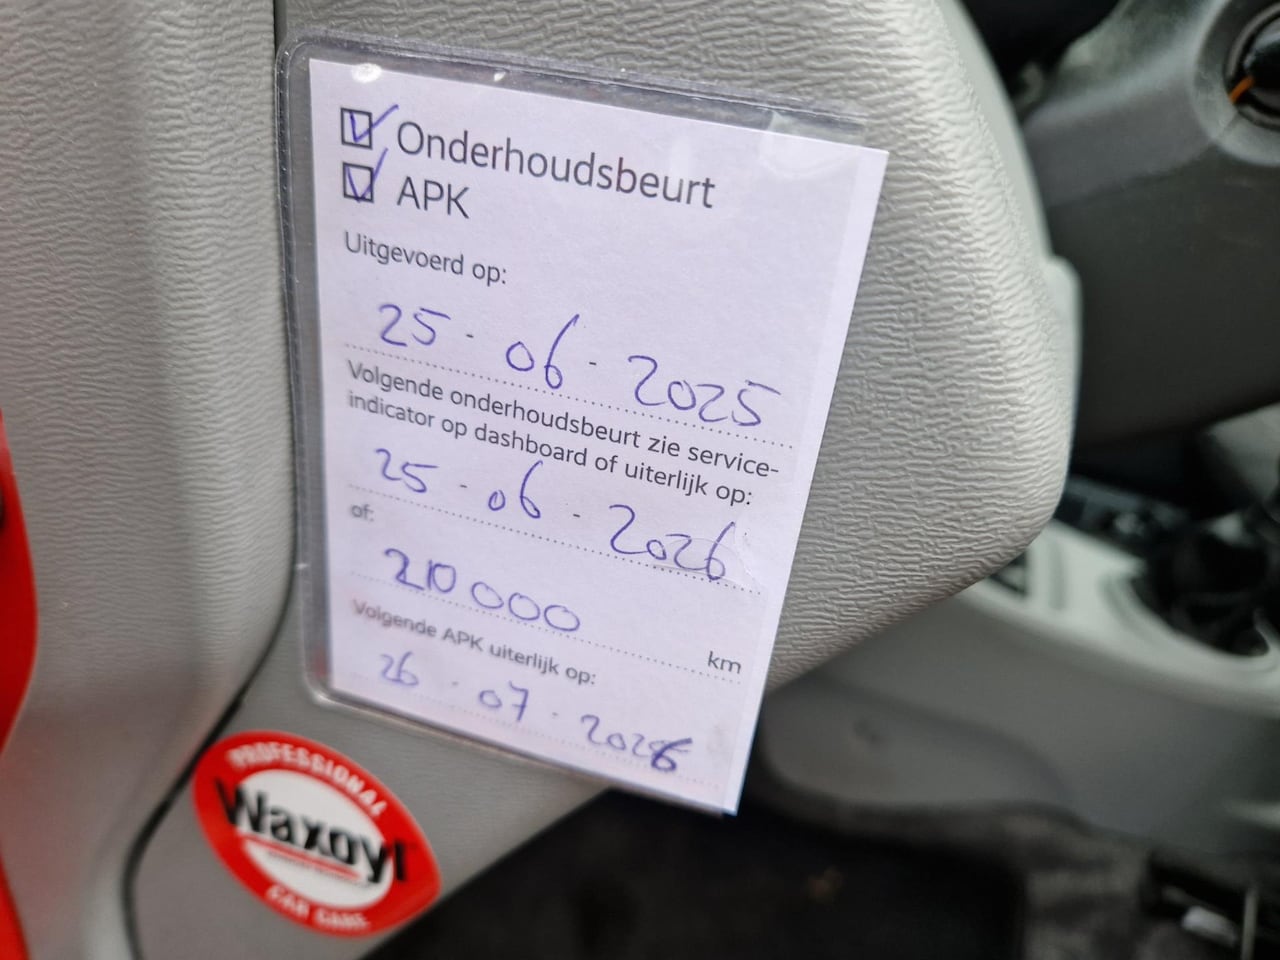 Onderhoudsbeurt
APK
Uitgevoerd op:
25-06-2025
Volgende onderhoudsbeurt zie service-
indicator op dashboard of uiterlijk op:
25-06-2026
of:
210000 km
Volgende APK uiterlijk op:
26-07-2026
PROFESSIONAL
Waxoyl
CAR CARE